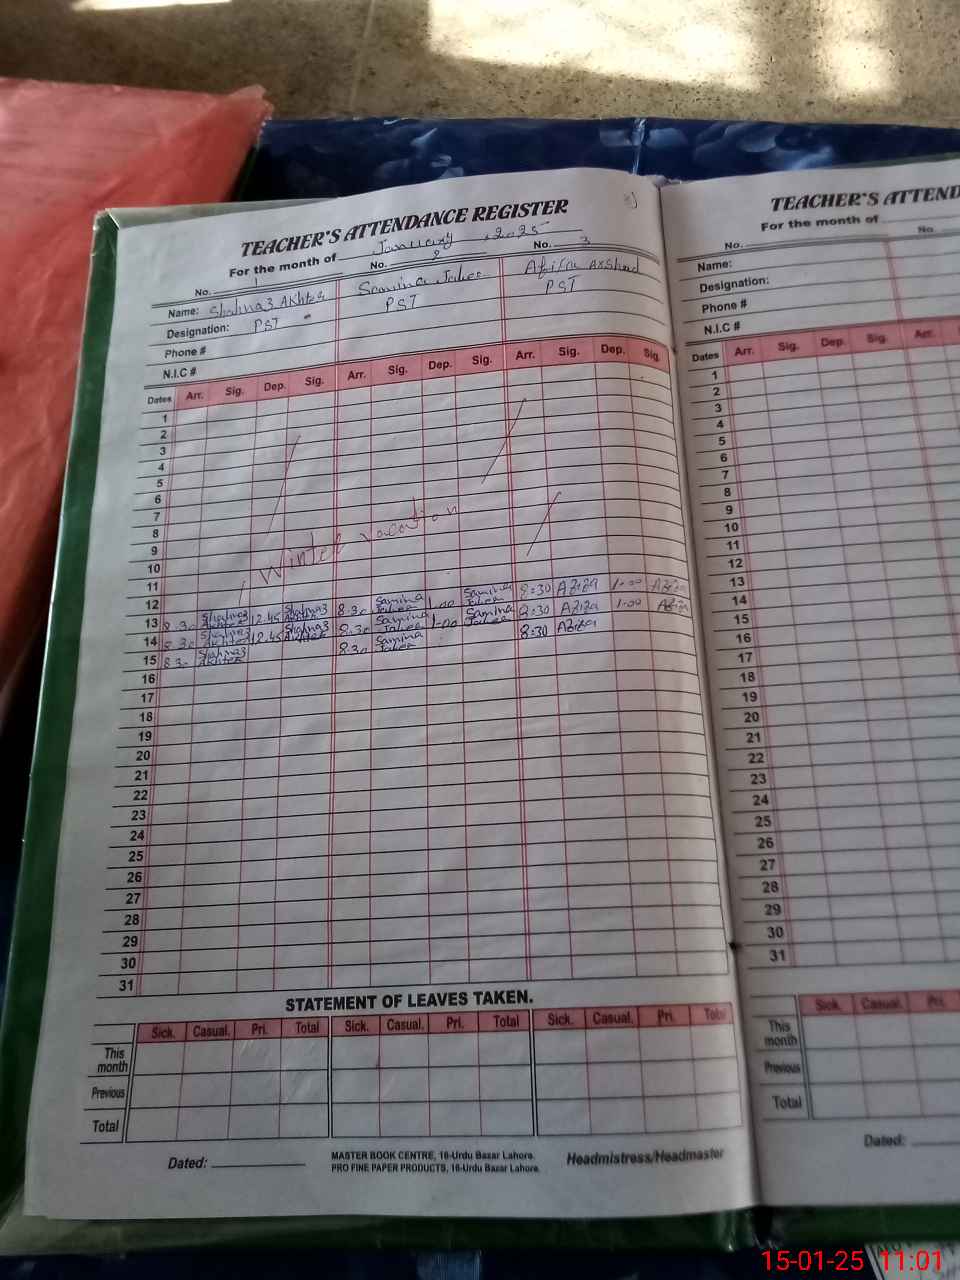 TEACHER'S ATTENDANCE REGISTER
For the month of January, 2025
No. 1 No. 2 No. 3
Name: Shahnaz Akhter Samina Jabeen
Designation: PST PST PST
Phone #
N.I.C #
Dates Arr. Sig. Dep. Sig. Arr. Sig. Dep. Sig. Arr. Sig. Dep. Sig.
1
2
3
4
5
6
7
8
9
10
11
Winter vacation
12
13 8.30 Shahnaz Akhter 12.45 Shahnaz Akhter 8.30 Samina Jabeen 1.00 Samina Jabeen 8:30 Aziza 1-00 Aziza
14 8.30 Shahnaz Akhter 12.45 Shahnaz Akhter 8.30 Samina Jabeen 1-00 Samina Jabeen 8:30 Aziza 1-00 Aziza
15 8.30 Shahnaz Akhter 8.30 Samina Jabeen 8:30 Aziza
16
17
18
19
20
21
22
23
24
25
26
27
28
29
30
31
STATEMENT OF LEAVES TAKEN.
Sick. Casual. Pri. Total Sick. Casual. Pri. Total Sick. Casual. Pri. Total
This month
Previous
Total
Dated:
MASTER BOOK CENTRE, 16-Urdu Bazar Lahore.
PRO FINE PAPER PRODUCTS, 16-Urdu Bazar Lahore.
Headmistress/Headmaster
TEACHER'S ATTEND
For the month of
No. No.
Name:
Designation:
Phone #
N.I.C #
Dates Arr. Sig. Dep. Sig. Arr.
1
2
3
4
5
6
7
8
9
10
11
12
13
14
15
16
17
18
19
20
21
22
23
24
25
26
27
28
29
30
31
Sick. Casual. Pri.
This month
Previous
Total
Dated:
15-01-25 11:01